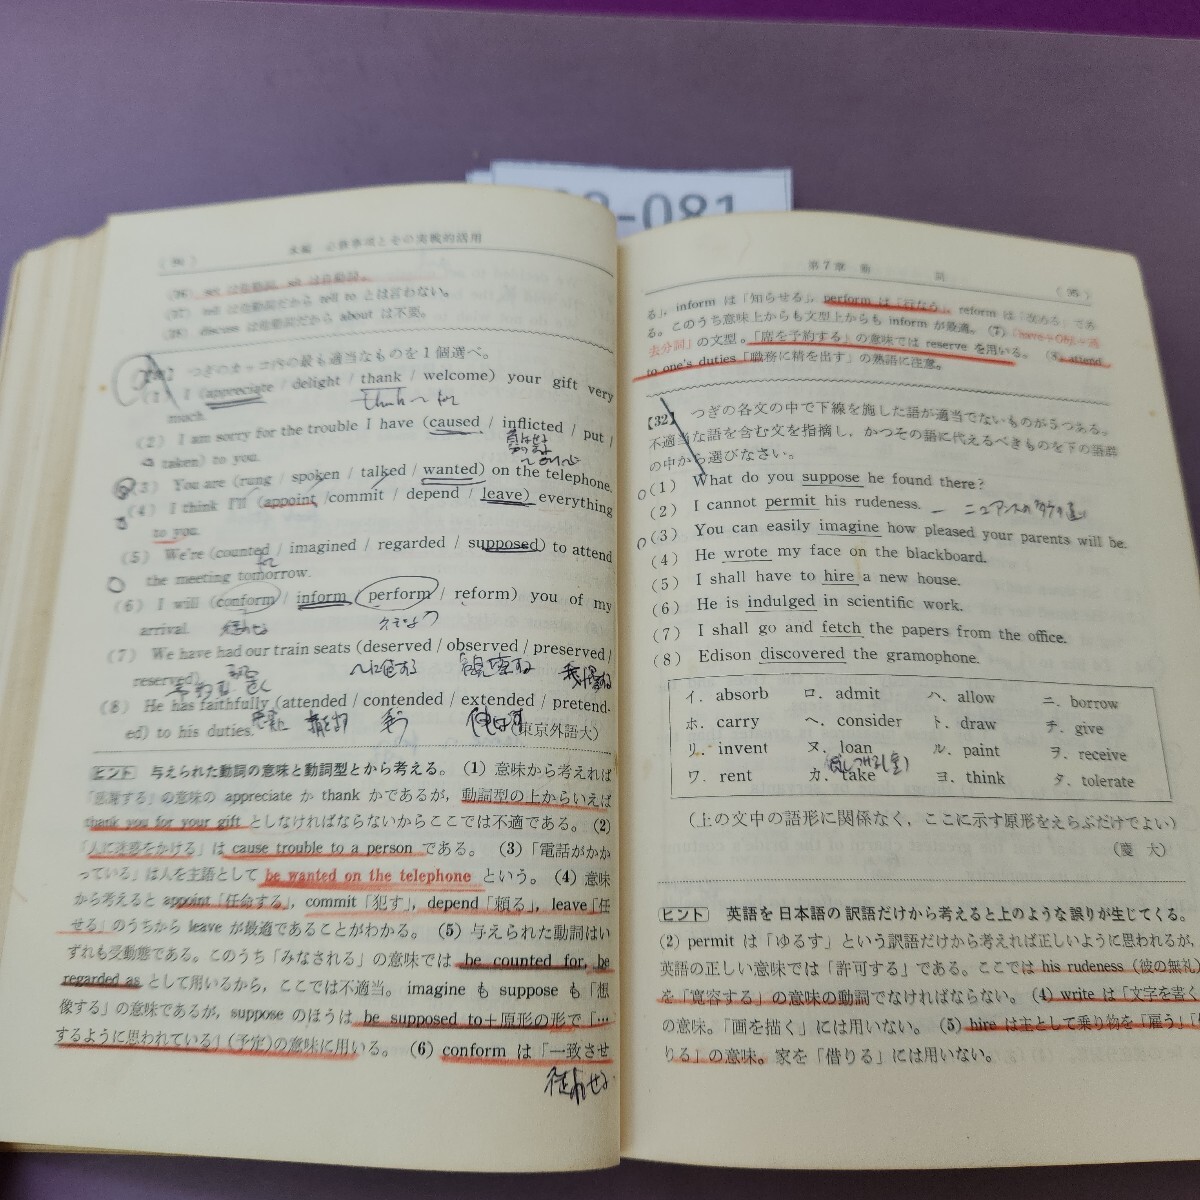 -081
本編 必修事項とその実戦的活用
(36) set は他動詞, sit は自動詞。
(37) tell は他動詞だから tell to とは言わない。
(38) discuss は他動詞だから about は不要。
つぎのカッコ内の最も適当なものを1個選べ。
(1) I (appreciate / delight / thank / welcome) your gift very
much.
(2) I am sorry for the trouble I have (caused / inflicted / put /
taken) to you.
(3) You are (rung / spoken / talked / wanted) on the telephone.
(4) I think I'll (appoint / commit / depend / leave) everything
to you.
(5) We're (counted / imagined / regarded / supposed) to attend
the meeting tomorrow.
(6) I will (conform / inform / perform / reform) you of my
arrival.
(7) We have had our train seats (deserved / observed / preserved /
reserved).
(8) He has faithfully (attended / contended / extended / pretend-
ed) to his duties.
(東京外語大)
ヒント 与えられた動詞の意味と動詞型とから考える。 (1) 意味から考えれば
「感謝する」の意味の appreciate か thank かであるが, 動詞型の上からいえば
thank you for your gift としなければならないからここでは不適である。 (2)
「人に迷惑をかける」は cause trouble to a person である。 (3) 「電話がかか
っている」は人を主語として be wanted on the telephone という。 (4) 意味
から考えると appoint「任命する」, commit「犯す」, depend「頼る」, leave「任
せる」のうちから leave が最適であることがわかる。 (5) 与えられた動詞はい
ずれも受動態である。このうち「みなされる」の意味では be counted for, be
regarded as として用いるから, ここでは不適当。 imagine も suppose も「想
像する」の意味であるが, suppose のほうは be supposed to+原形の形で「…
するように思われている」(予定)の意味に用いる。 (6) conform は「一致させ
従わせる
第7章 動 詞
る」, inform は「知らせる」, perform は「行なう」, reform は「改める」であ
る。このうち意味上からも文型上からも inform が最適。 (7) 「have+Obj.+過
去分詞」の文型。「席を予約する」の意味では reserve を用いる。 (8) attend
to one's duties「職務に精を出す」の熟語に注意。
【32】 つぎの各文の中で下線を施した語が適当でないものが5つある。
不適当な語を含む文を指摘し, かつその語に代えるべきものを下の語群
の中から選びなさい。
(1) What do you suppose he found there?
(2) I cannot permit his rudeness.
(3) You can easily imagine how pleased your parents will be.
(4) He wrote my face on the blackboard.
(5) I shall have to hire a new house.
(6) He is indulged in scientific work.
(7) I shall go and fetch the papers from the office.
(8) Edison discovered the gramophone.
イ. absorb ロ. admit ハ. allow ニ. borrow
ホ. carry ヘ. consider ト. draw チ. give
リ. invent ヌ. loan ル. paint ヲ. receive
ワ. rent カ. take ヨ. think タ. tolerate
(上の文中の語形に関係なく, ここに示す原形をえらぶだけでよい)
(慶 大)
ヒント 英語を日本語の訳語だけから考えると上のような誤りが生じてくる。
(2) permit は「ゆるす」という訳語だけから考えれば正しいように思われるが,
英語の正しい意味では「許可する」である。ここでは his rudeness (彼の無礼)
を「寛容する」の意味の動詞でなければならない。 (4) write は「文字を書く」
の意味。「画を描く」には用いない。 (5) hire は主として乗り物を「雇う」「
りる」の意味。家を「借りる」には用いない。